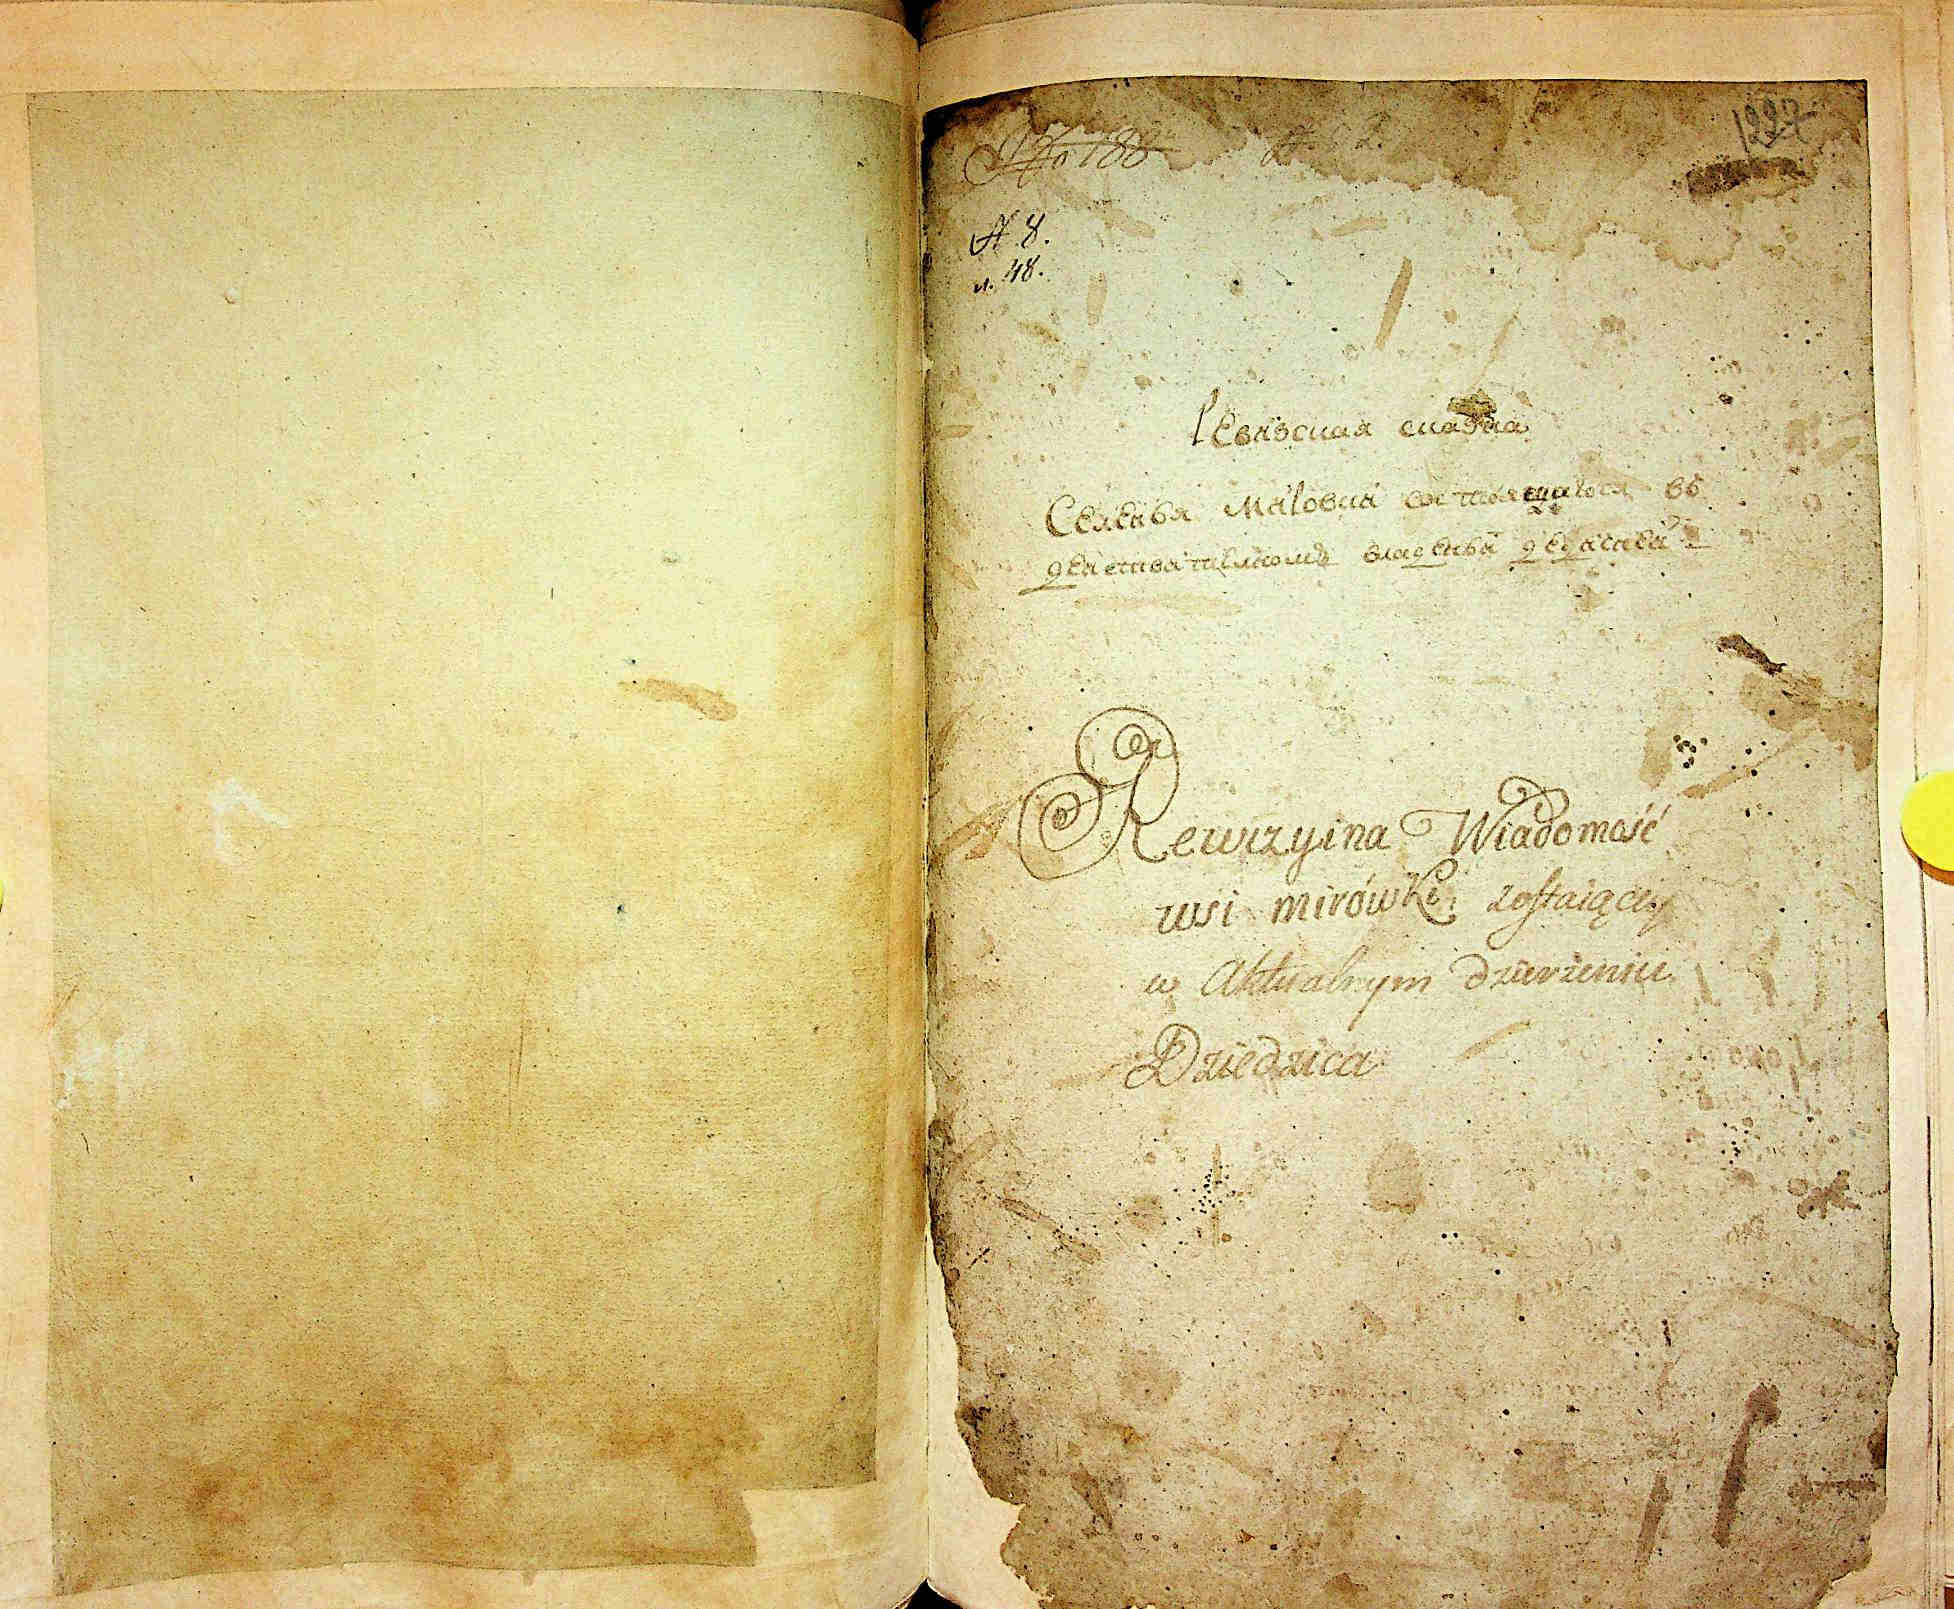 No 188
1227
№ 8.
л. 48.
Ревизская сказка
Селения Мировки состоящаго въ
действительномъ владении дедича
Rewizyina Wiadomość
wsi mirówki zostaiący
w Aktualnym dzierżeniu
Dziedzica